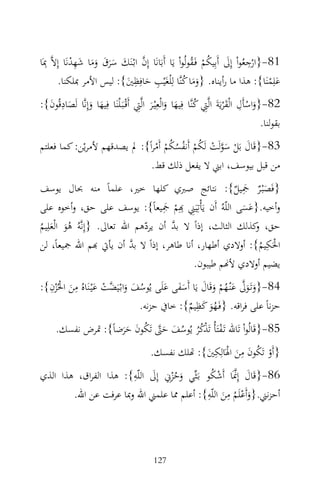 81-{ارْجِعُوا إِلَى أَبِيكُمْ فَقُولُوا يَا أَبَانَا إِنَّ ابْنَكَ سَرَقَ وَمَا شَهِدْنَا إِلاَّ بِمَا
عَلِمْنَا}: هذا ما رأيناه. {وَمَا كُنَّا لِلْغَيْبِ حَافِظِينَ}: ليس الأمر بملكنا.
82-{وَاسْأَلِ الْقَرْيَةَ الَّتِي كُنَّا فِيهَا وَالْعِيْرَ الَّتِي أَقْبَلْنَا فِيهَا وَإِنَّا لَصَادِقُونَ}:
بقولنا.
83-{قَالَ بَلْ سَوَّلَتْ لَكُمْ أَنفُسُكُمْ أَمْراً}: لم يصدقهم لأمرين: كما فعلتم
من قبل بيوسف، ابني لا يفعل ذلك قط.
{فَصَبْرٌ جَمِيلٌ}: نتائج صبري كلها خير، علماً منه بحال يوسف
وأخيه. {عَسَى اللَّهُ أَن يَأْتِيَنِي بِهِمْ جَمِيعاً}: يوسف على حق، وأخوه على
حق، وكذلك الثالث، إذاً لا بدَّ أن يردّهم الله تعالى. {إِنَّهُ هُوَ الْعَلِيمُ
الْحَكِيمُ}: أولادي أطهار، أنا طاهر، إذاً لا بدَّ أن يأتي بهم الله جميعاً، لن
يضيم أولادي لأنهم طيبون.
84-{وَتَوَلَّى عَنْهُمْ وَقَالَ يَا أَسَفَى عَلَى يُوسُفَ وَابْيَضَّتْ عَيْنَاهُ مِنَ الْحُزْنِ}:
حزناً على فراقه. {فَهُوَ كَظِيمٌ}: خافي حزنه.
85-{قَالُوا تَالله تَفْتَأُ تَذْكُرُ يُوسُفَ حَتَّى تَكُونَ حَرَضاً}: تمرض نفسك.
{أَوْ تَكُونَ مِنَ الْهَالِكِينَ}: تهلك نفسك.
86-{قَالَ إِنَّمَا أَشْكُو بَثِّي وَحُزْنِي إِلَى اللّهِ}: هذا الفراق، هذا الذي
أحزنني. {وَأَعْلَمُ مِنَ اللّهِ}: أعلم مما علمني الله وبما عرفت عن الله.
127